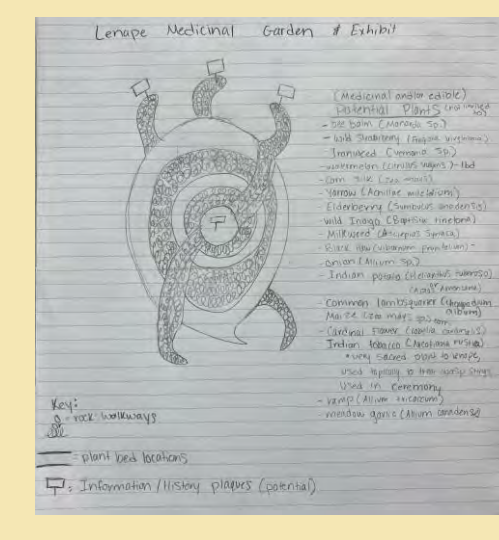 Lenape Medicinal Garden & Exhibit
(Medicinal and/or edible)
Potential Plants (not limited to)
- bee balm (Monarda sp.)
- wild strawberry (Fragaria virginiana)
- Ironweed (Vernonia sp.)
- watermelon (citrullus vulgaris) - tbd
- corn silk (zea mays)
- Yarrow (Achillae millefolium)
- Elderberry (Sambucus canadensis)
- wild Indigo (Baptisia tinctoria)
- Milkweed (Asclepius Syriaca)
- Black Haw (viburnum prunifolium)
- onion (Allium sp.)
- Indian potato (Helianthus tuberoso)
(Apios Americana)
- Common lambsquarter (chenopodium album)
Maize (zea mays)
- Cardinal Flower (lobelia cardinalis)
Indian tobacco (Nicotiana rustica)
* very sacred plant to lenape,
used topically to treat
Used in ceremony
- ramp (Allium tricoccum)
- meadow garlic (Allium canadense)
Key:
- rock walkways
= plant bed locations
: Information / History plaques (potential)